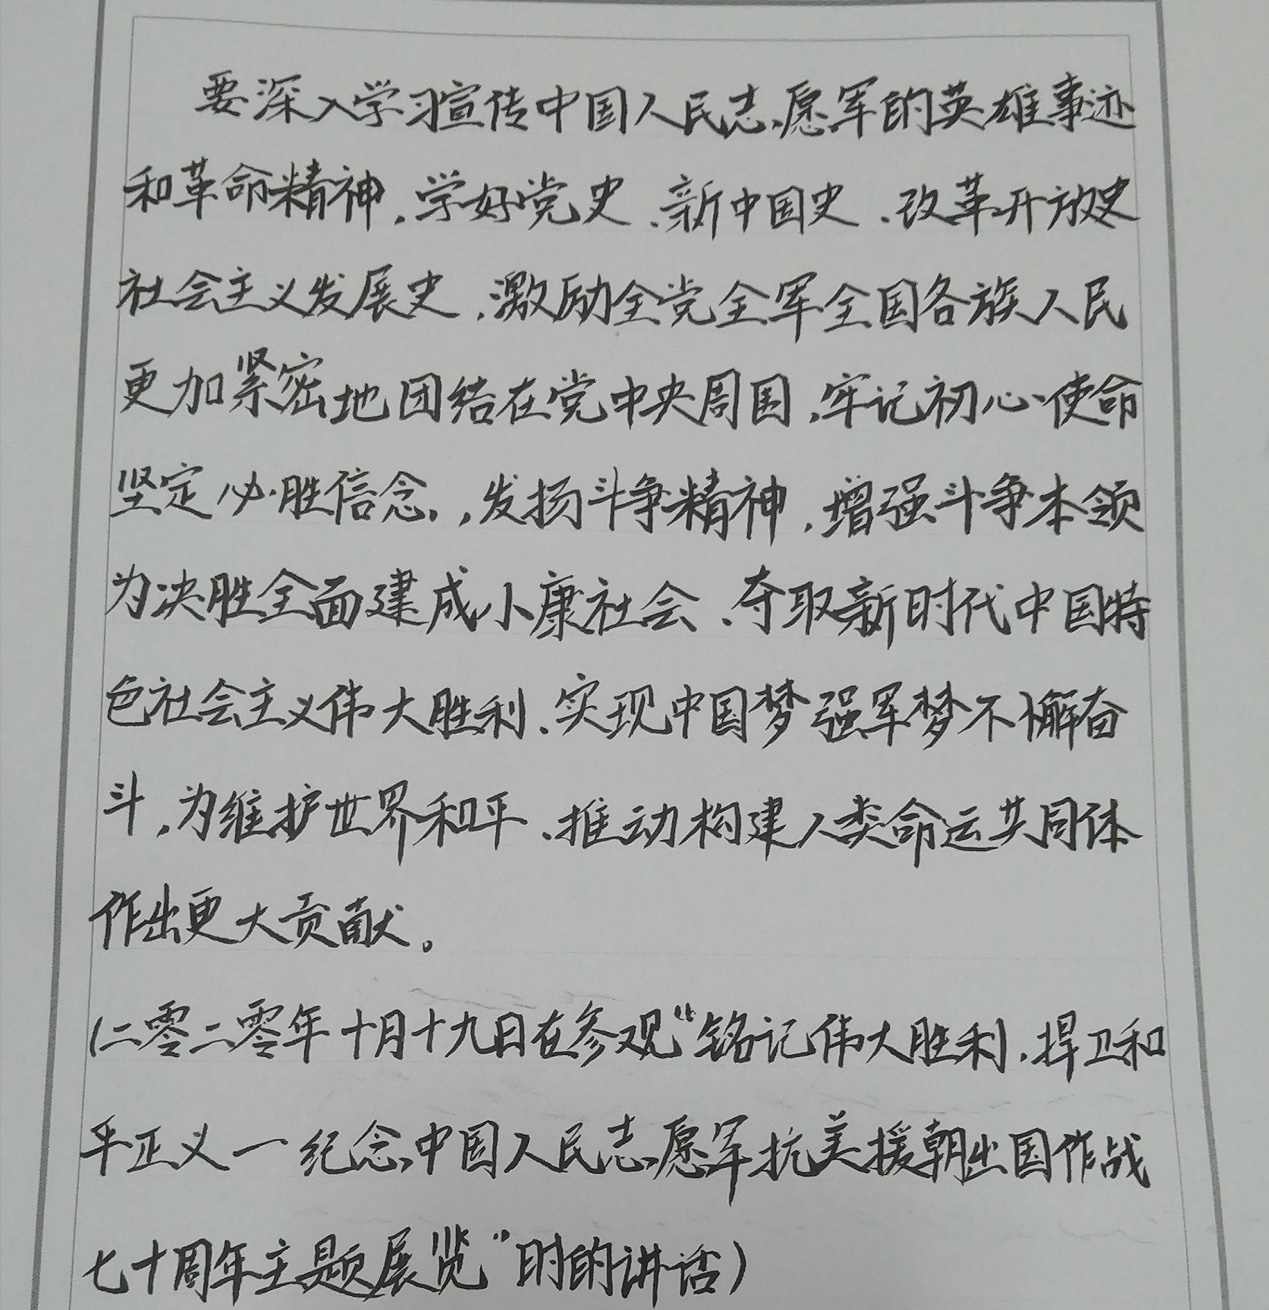 要深入学习宣传中国人民志愿军的英雄事迹
和革命精神，学好党史、新中国史、改革开放史
社会主义发展史，激励全党全军全国各族人民
更加紧密地团结在党中央周国，牢记初心使命
坚定必胜信念，，发扬斗争精神，增强斗争本领
为决胜全面建成小康社会、夺取新时代中国特
色社会主义伟大胜利、实现中国梦强军梦不懈奋
斗，为维护世界和平、推动构建人类命运共同体
作出更大贡献。
(二零二零年十月十九日在参观“铭记伟大胜利，捍卫和
平正义一纪念中国人民志愿军抗美援朝出国作战
七十周年主题展览”时的讲话)